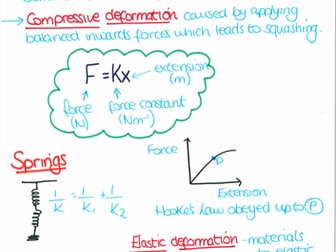 → Compressive deformation caused by applying
balanced inwards forces which leads to squashing.
F = Kx
extension
(m)
force
(N)
force constant
(Nm⁻¹)
Springs
Force
P
1/K = 1/K₁ + 1/K₂
Extension
Hooke's Law obeyed up to P
Elastic deformation - materials